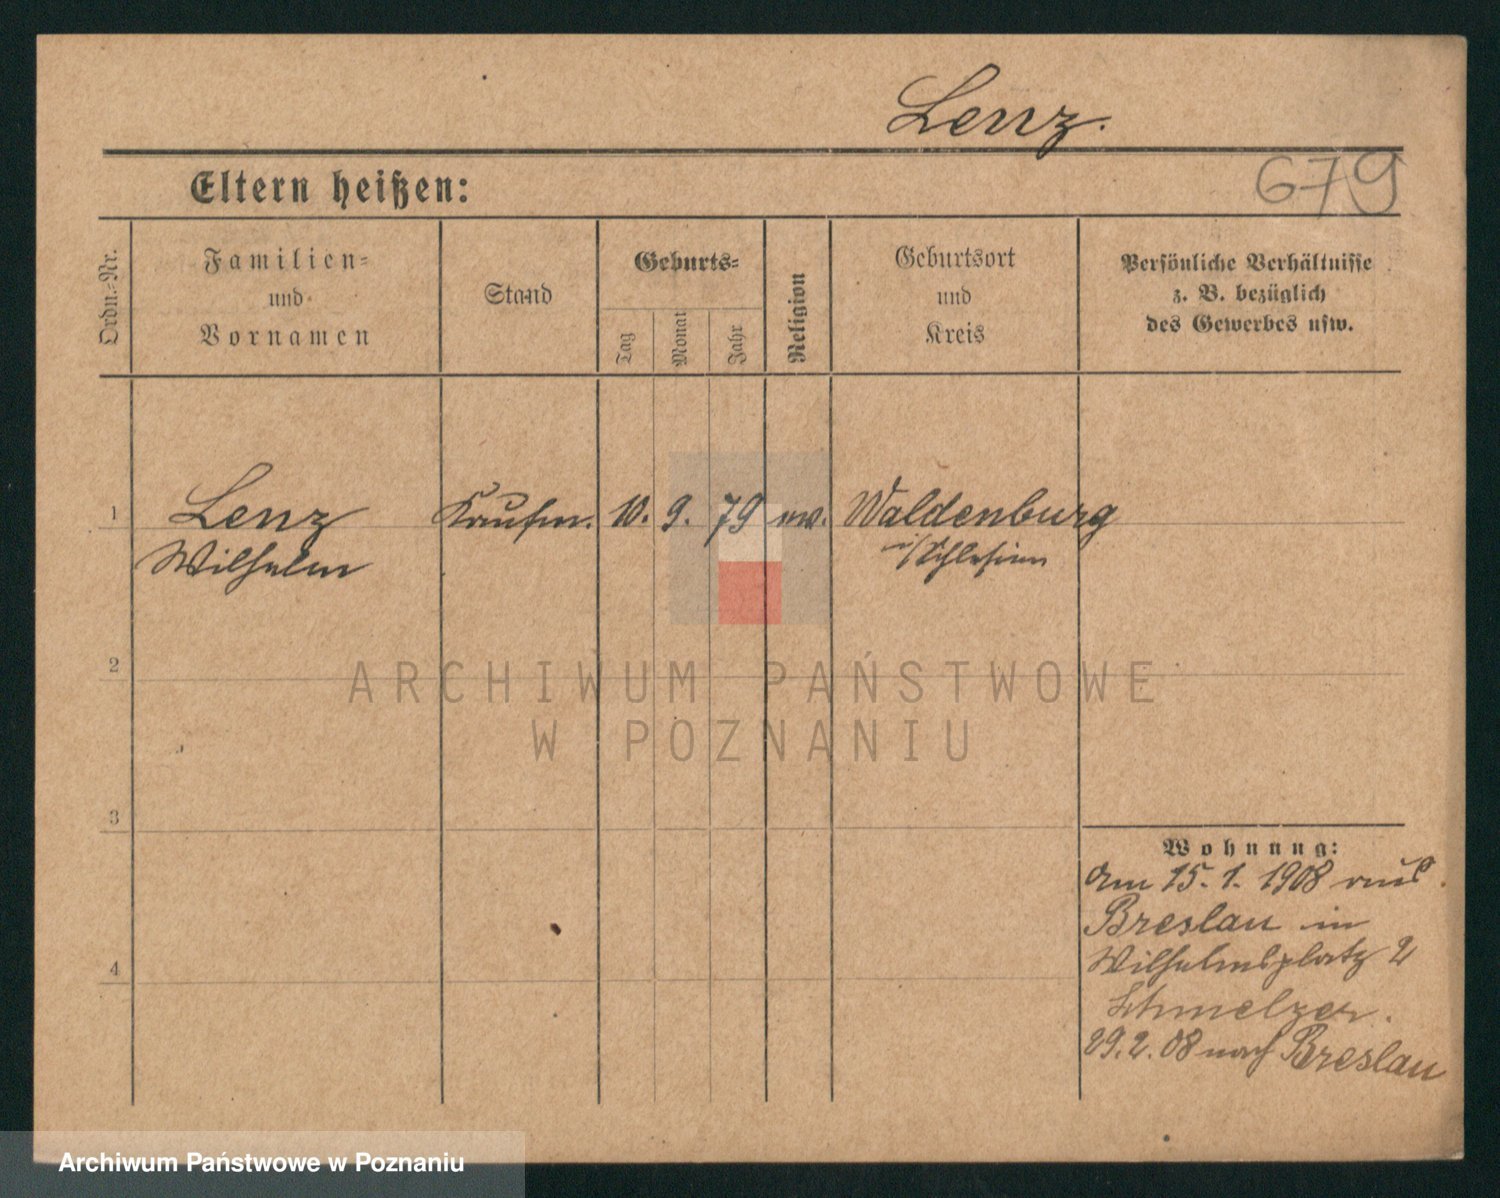 Lenz.
679
Eltern heißen:
Ordn.-Nr.
Familien-
und
Vornamen
Stand
Geburts-
Tag
Monat
Jahr
Religion
Geburtsort
und
Kreis
Persönliche Verhältnisse
z. B. bezüglich
des Gewerbes usw.
1
Lenz
Wilhelm
Kaufm.
10.
9.
79
Waldenburg
i/Schlesien
2
ARCHIWUM PAŃSTWOWE
W POZNANIU
3
4
Wohnung:
Am 15. 1. 1908 aus
Breslau in
Wilhelmsplatz 2
Schmelzer.
29. 2. 08 nach Breslau
Archiwum Państwowe w Poznaniu